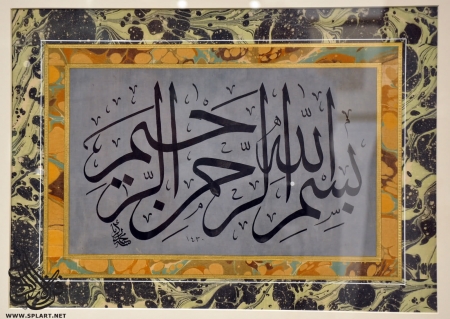 بسم الله الرحمن الرحيم
١٤٣٠
WWW.SPLART.NET